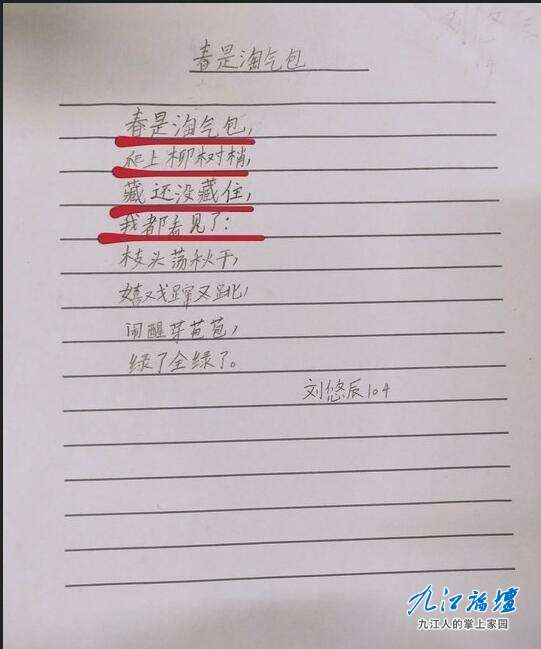 刘悠辰
104
春是淘气包
春是淘气包,
爬上柳树梢,
藏还没藏住,
我都看见了:
枝头荡秋千,
嬉戏蹿又跳,
闹醒芽苞苞,
绿了全绿了。
刘悠辰104
九江论坛
九江人的掌上家园